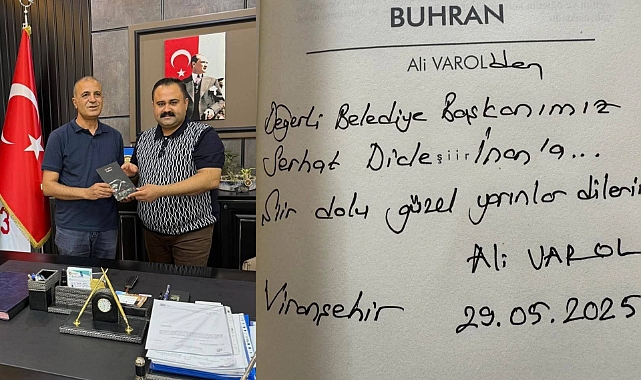 BUHRAN
Ali VAROL'den
Değerli Belediye Başkanımız
Serhat Dicle şiir İnan'a...
Şiir dolu güzel yarınlar dilerim
Ali VAROL
Viranşehir 29.05.2025